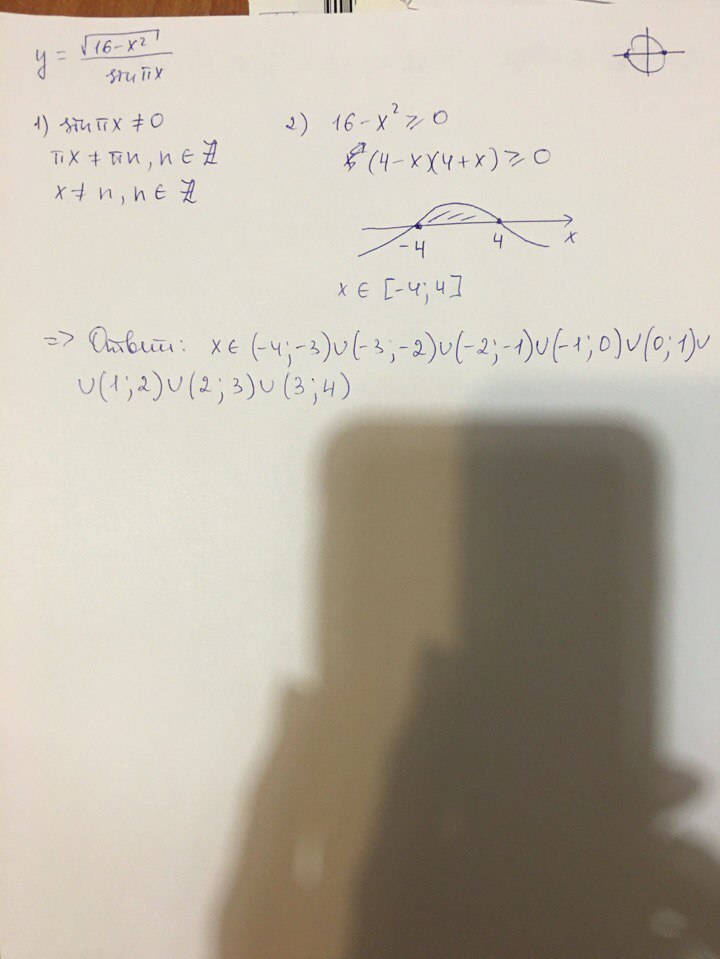 y = √(16-x²) / sin πx
1) sin πx ≠ 0
πx ≠ πn, n ∈ ℤ
x ≠ n, n ∈ ℤ
2) 16 - x² ≥ 0
(4-x)(4+x) ≥ 0
-4 4 x
x ∈ [-4; 4]
=> Ответ: x ∈ (-4; -3)∪(-3; -2)∪(-2; -1)∪(-1; 0)∪(0; 1)∪
∪(1; 2)∪(2; 3)∪(3; 4)